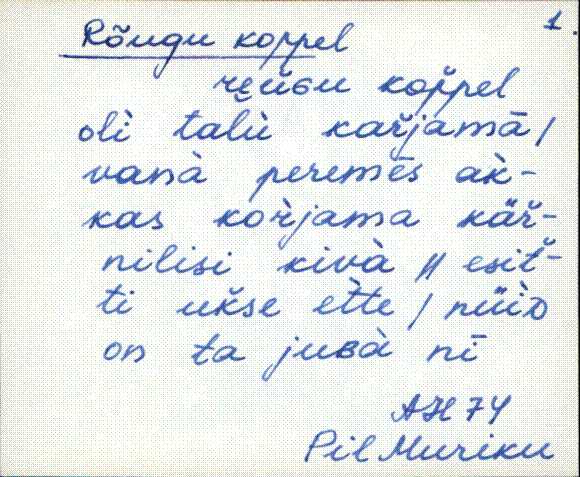 1.
Rõugu koppel
rẹ̈ūɢu kop̆pel
olì talù kař̆jamā /
vanà peremēs àk-
kas kor̀jama kär̆-
nilisi kivà // esit̆-
ti ukše ètte / nüìᴅ
on ta juʙà nī
AH 74
Pil Muriku